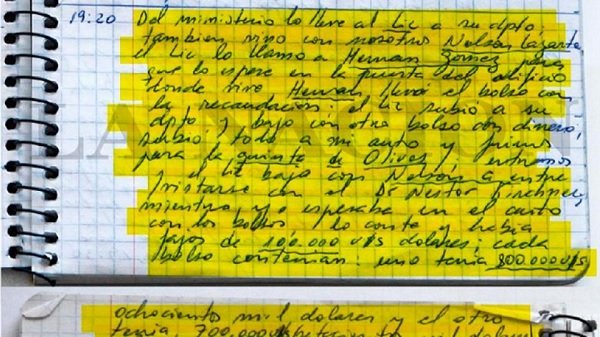 19:20 Del ministerio lo lleve al Lic a su dpto,
tambien vino con nosotros Nelson Lazarte,
el Lic lo llamo a Hernan Gomez para
que lo espere en la puerta del edificio
donde vive Hernan, llevó el bolso con
la recaudacion: el Lic subio a su
dpto y bajo con otro bolso con dinero,
subio todo a mi auto y fuimos
para la quinta de Olivos, entramos
y el Lic bajo con Nelson a entre
vistarse con el Dr Nestor Kirchner,
mientras yo esperaba en el auto
con los bolsos, lo conte y habia
fajos de 100.000 u$s dolares: cada
bolso contenian: uno tenia 800.000 u$s
ochocientos mil dolares y el otro
tenia 700.000 u$s setecientos mil dolares
LA NACION